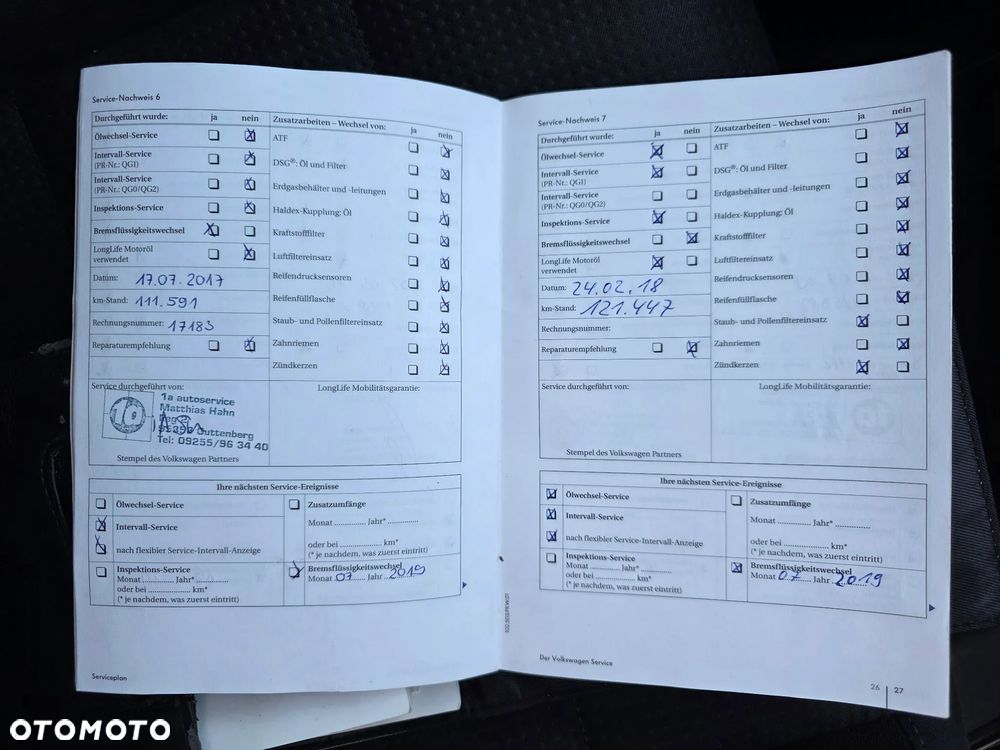 Service-Nachweis 6
Durchgeführt wurde: ja nein
Zusatzarbeiten – Wechsel von: ja nein
Ölwechsel-Service
ATF
Intervall-Service
(PR-Nr.: QG1)
DSG®: Öl und Filter
Intervall-Service
(PR-Nr.: QG0/QG2)
Erdgasbehälter und -leitungen
Inspektions-Service
Haldex-Kupplung: Öl
Bremsflüssigkeitswechsel
Kraftstofffilter
LongLife Motoröl
verwendet
Luftfiltereinsatz
Datum: 17.07.2017
Reifendrucksensoren
km-Stand: 111.591
Reifenfüllflasche
Rechnungsnummer: 17183
Staub- und Pollenfiltereinsatz
Reparaturempfehlung
Zahnriemen
Zündkerzen
Service durchgeführt von:
LongLife Mobilitätsgarantie:
1a autoservice
Matthias Hahn
Guttenberg
Tel: 09255/96 34 40
Stempel des Volkswagen Partners
Ihre nächsten Service-Ereignisse
Ölwechsel-Service
Zusatzumfänge
Monat ............. Jahr* .............
Intervall-Service
nach flexibler Service-Intervall-Anzeige
oder bei ............. km*
(* je nachdem, was zuerst eintritt)
Inspektions-Service
Monat ............. Jahr* .............
oder bei ............. km*
(* je nachdem, was zuerst eintritt)
Bremsflüssigkeitswechsel
Monat 07 Jahr 2019
Serviceplan
Service-Nachweis 7
Durchgeführt wurde: ja nein
Zusatzarbeiten – Wechsel von: ja nein
Ölwechsel-Service
ATF
Intervall-Service
(PR-Nr.: QG1)
DSG®: Öl und Filter
Intervall-Service
(PR-Nr.: QG0/QG2)
Erdgasbehälter und -leitungen
Inspektions-Service
Haldex-Kupplung: Öl
Bremsflüssigkeitswechsel
Kraftstofffilter
LongLife Motoröl
verwendet
Luftfiltereinsatz
Datum: 24.02.18
Reifendrucksensoren
km-Stand: 121.447
Reifenfüllflasche
Rechnungsnummer:
Staub- und Pollenfiltereinsatz
Reparaturempfehlung
Zahnriemen
Zündkerzen
Service durchgeführt von:
LongLife Mobilitätsgarantie:
Stempel des Volkswagen Partners
Ihre nächsten Service-Ereignisse
Ölwechsel-Service
Zusatzumfänge
Intervall-Service
Monat ............. Jahr* .............
nach flexibler Service-Intervall-Anzeige
oder bei ............. km*
(* je nachdem, was zuerst eintritt)
Inspektions-Service
Monat ............. Jahr* .............
oder bei ............. km*
(* je nachdem, was zuerst eintritt)
Bremsflüssigkeitswechsel
Monat 07 Jahr 2019
Der Volkswagen Service
26 27
OTOMOTO